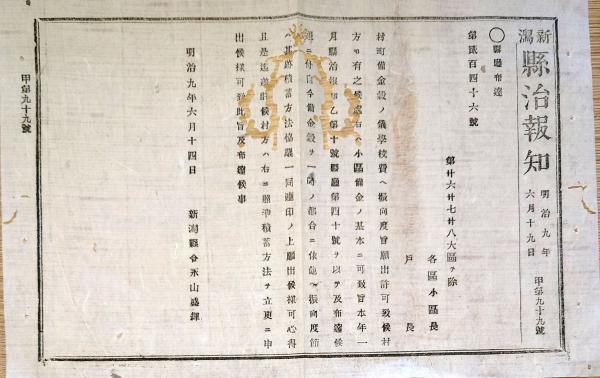 新潟
縣治報知
明治九年
六月十九日
甲第九十九號
〇縣廳布達
第貳百四十六號
第廿六廿七廿八大區ヲ除
各區小區長
戸長
村町備金穀ノ儀學校費ヘ振向度旨願出許可致候村
方モ有之候處右ハ小區備金ノ基本ニ可致旨本年一
月縣治報知乙第十號縣廳第四十號ヲ以テ及布達候
ニ付自今備金穀ヲ一時ノ都合ニ依他ヘ振向度節
ハ其跡積蓄方法協議一同連印ノ上願出候樣可心得
且是迄許候村方ハ右ニ照準積蓄方法ヲ立更ニ申
出候樣可致此旨及布達候事
明治九年六月十四日
新潟縣令永山盛輝
甲第九十九號